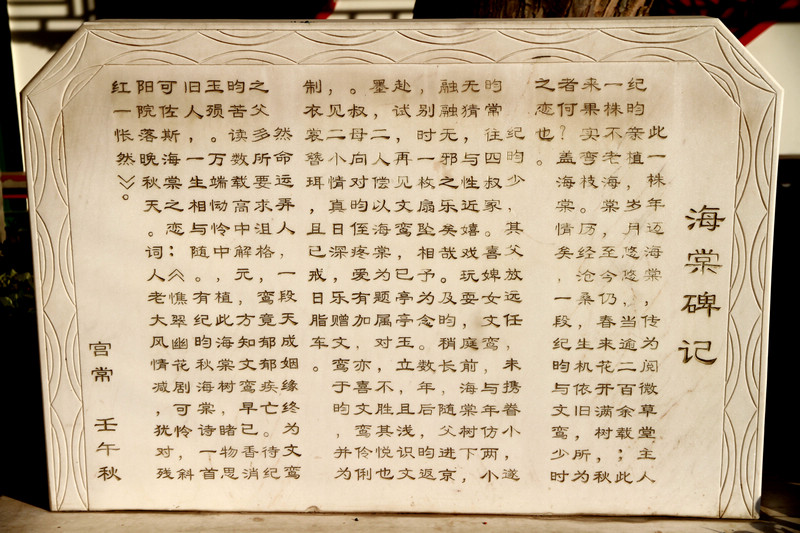 海棠碑记
此一株年迈海棠,传为阅微草堂主人
纪昀亲植,岁月悠悠,当逾二百余载;此
一株不老海棠,至今仍春来花开满树,秋
来果实弯枝。历经沧桑,生机依旧,所为
者何?盖海棠情矣,一段纪昀与文鸾少时
之恋也。
纪昀少,其父放远任,未携眷小,遂
昀常往四叔家,喜婢女文鸾,与年仿,两小
无猜,与性近。嬉戏玩耍庭前海棠树下,
融融无邪之乐矣哉。及昀稍长,随父进京
,别时一枚扇坠相予为念。数年后昀返
赴试,再见文鸾,已亭亭玉立,且浅识文
墨,二人偿以海棠为题属对,不胜其悦也
。叔母向对昀侄疼爱有加,亦喜文鸾伶俐
,见二小情真日深,乐赠鸾于昀,并为
制衣裳簪珥,且已戒日脂车。
然命运弄人,一段天成姻缘终为文鸾
之父多所要求沮格,鸾竟郁郁疾亡。待纪
昀苦读数载高中解元,方知文鸾早已香消
玉殒。万端恸中,植此海棠树,睹物思
旧人,一生相怜与随。有纪昀秋海棠诗一首
可佐斯海棠之恋:《憔翠幽花剧可怜,斜
阳院落晚秋天。词人老大风情减,犹对残
红一怅然》。
宫常 壬午秋